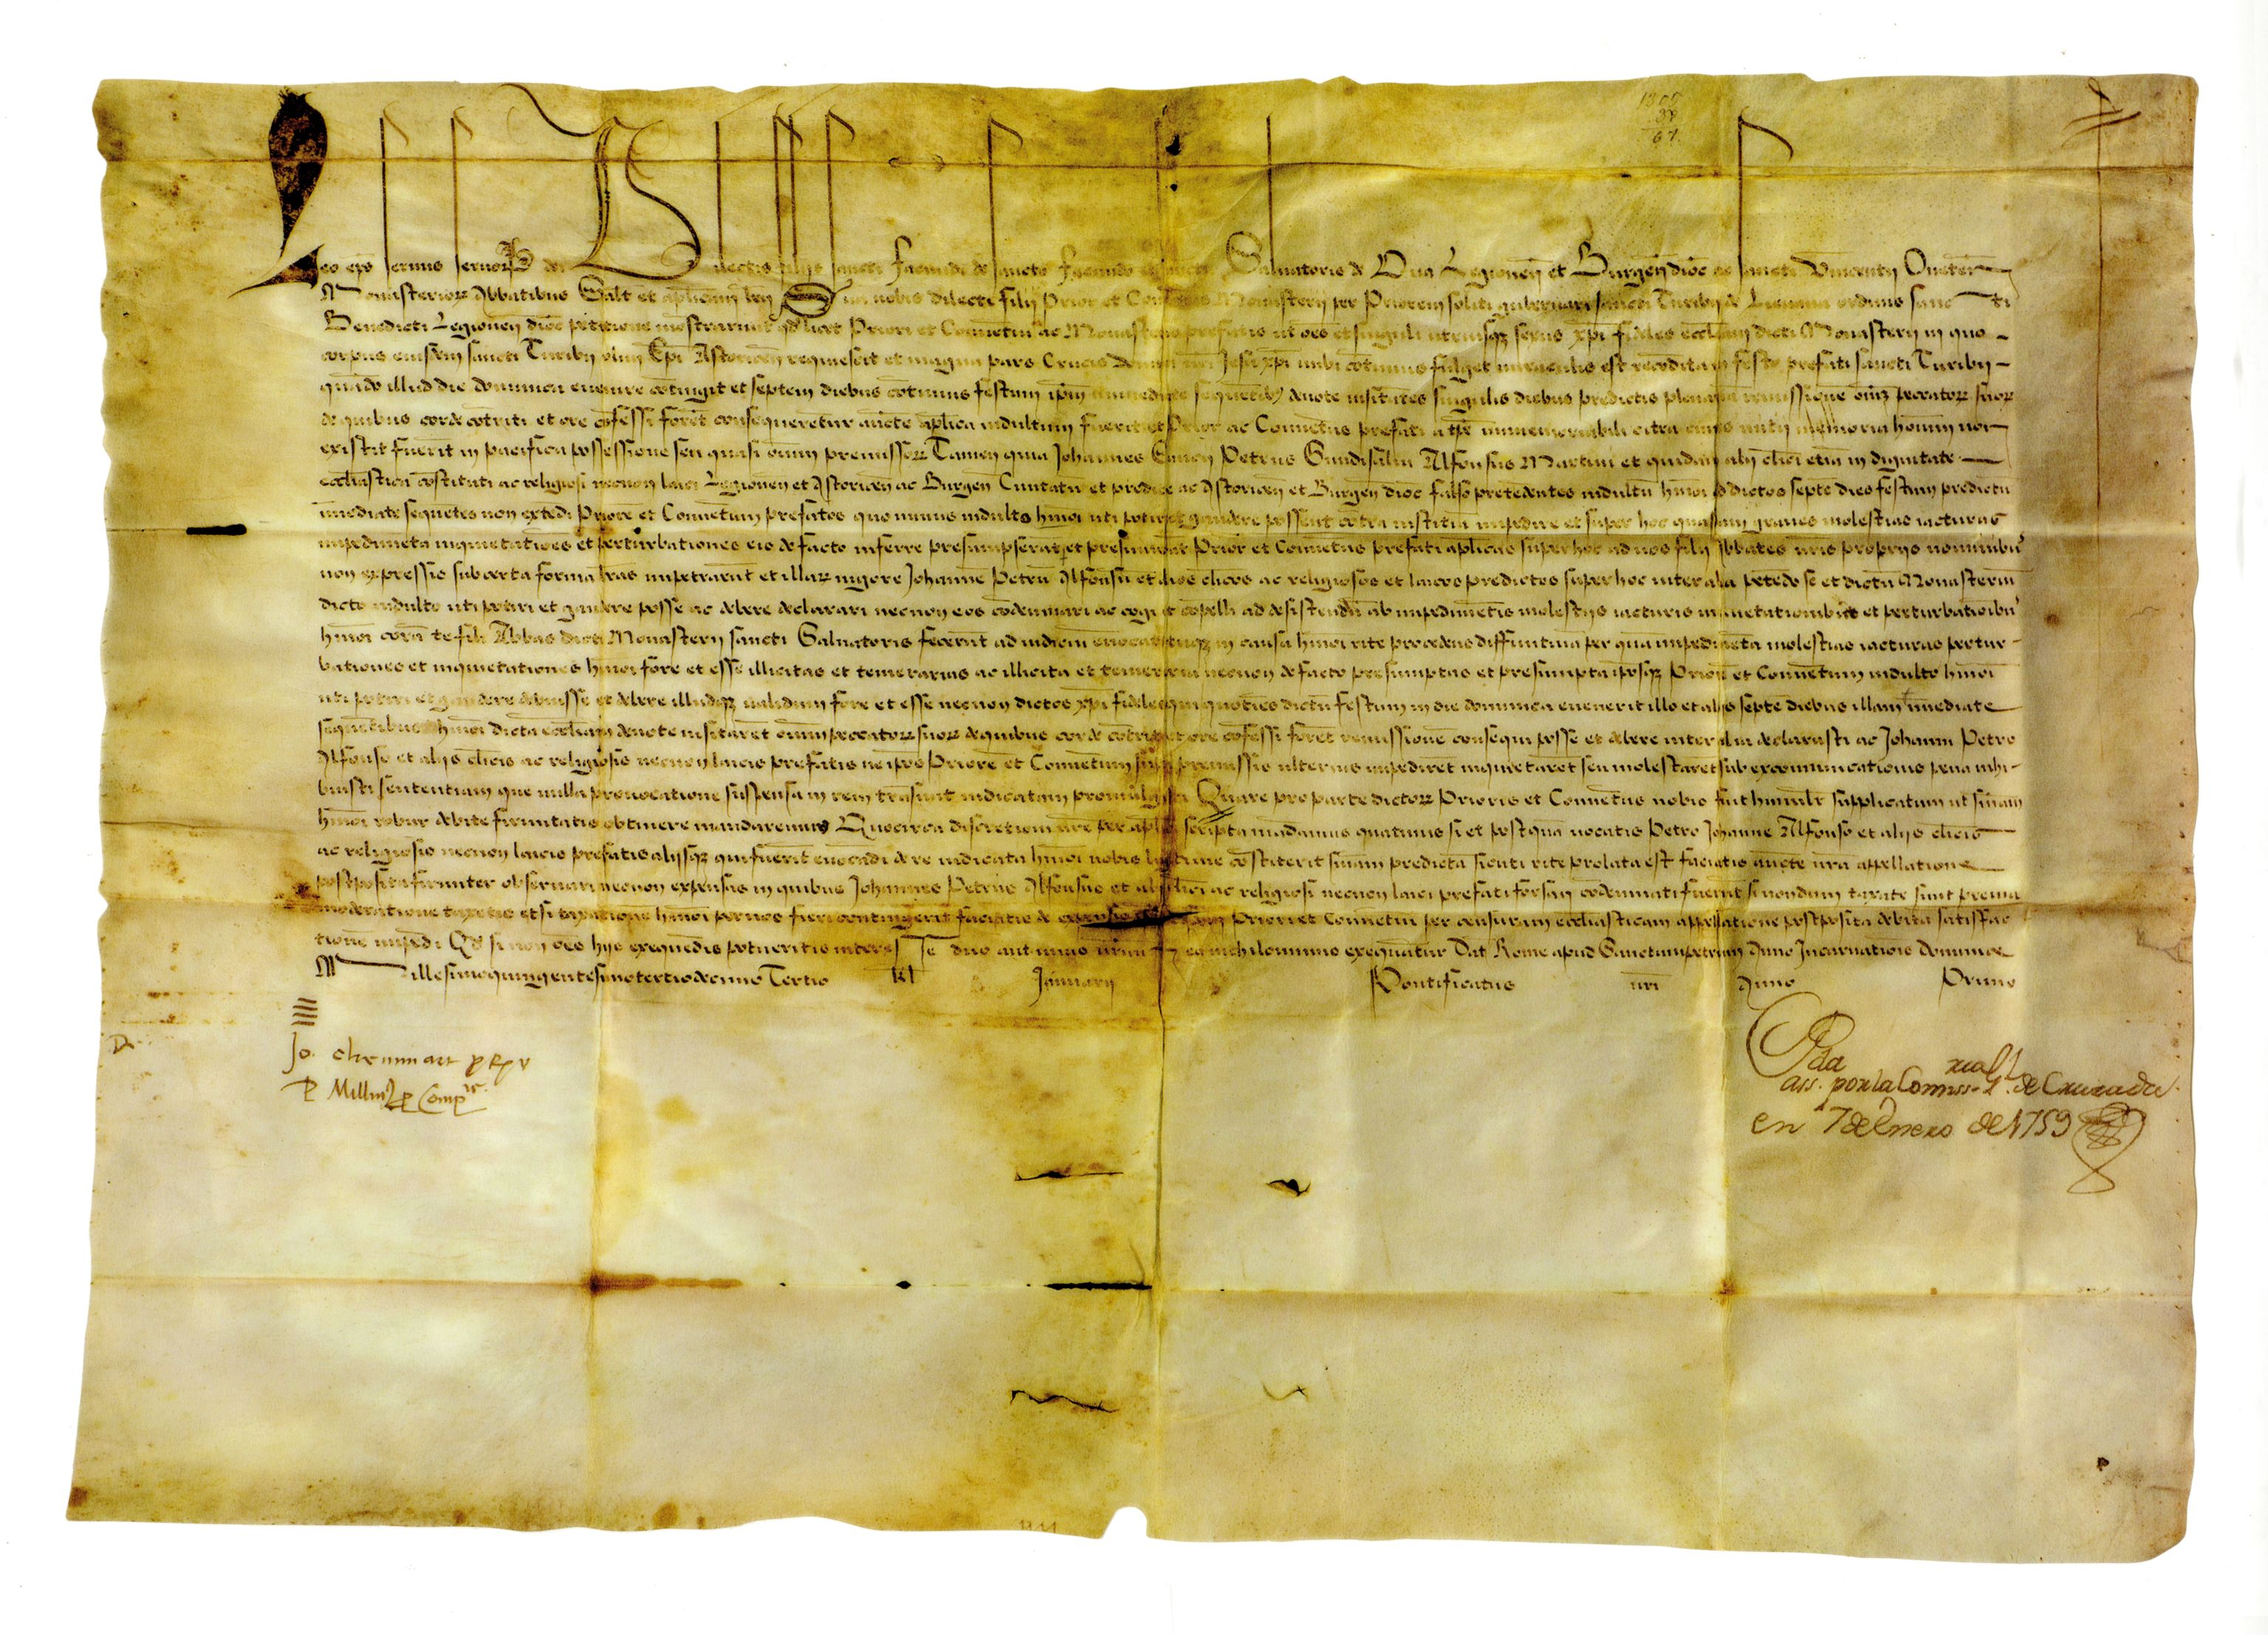 1305
88
67.
Leo eps seruus seruorꝫ dei Dilectis filijs sancti Facundi de sancto Facundo et sancti Saluatoris de Ona Legionen̄ et Burgen̄ dioc̄ ac sancti Vincentij Oueten̄
Monasteriorꝫ Abbatibus Salt̄ et aplicam ben̄ Sua nobis dilecti filij Prior et Conuentus Monasterij per Priorem soliti gubernari sancti Turibij de Lieuana ordinis sancti
Benedicti Legionen̄ dioc̄ petitione mostrarunt qd licet Priori et Conuentui ac Monasterio prefatis ut oēs et singuli utriusqꝫ sexus xpi fideles eccliam dicti Monasterij in quo
corpus eiusdem sancti Turibij olim Epi Astoricen̄ requiescit et magna pars Crucis domini nri Jesu xpi inibi cotinuis fulget miraculis est recodita in festo prefati sancti Turibij
quādo illud die dominica euenire cōtingit et septem diebus cōtinuis festum ipm immediate sequetibꝫ deuote uisitātes singulis diebus predictis plenariā remissionē oim peccatorꝫ suorꝫ
de quibus corde cōtriti et ore cōfessi foret consequeretur aucte aplica indultum fuerit et Prior ac Conuetus prefati a tpe immemorabili citra cuius initij memoria hoim non
existit fuerit in pacifica possessione seu quasi oium premissorꝫ Tamen quia Johannes Petrus Gundisalui Alfonsus Martini et quidam alij clici etia in dignitate
eccliastica cōstituti ac religiosi necnon laici Legionen̄ et Astoricen̄ ac Burgen̄ Ciuitatū et predicte ac Astoricen̄ et Burgen̄ dioc̄ falso pretendentes indultū hmoi ad dictos septe dies festum predictū
imediate sequetes non extedi Priore et Conuetum prefatos quominus indulto hmoi uti potiri et gaudere possent cotra iustitia impedire et super hoc quasdam graues molestias iacturas
impedimeta inquietatioes et perturbationes eis de facto inferre presumpserat et presumunt Prior et Conuetus prefati aplicas super hoc ad uos filij Abbates uris proprijs nominibꝰ
non expressis sub certa forma lras impetrarut et illarꝫ uigore Johanne Petru Alfonsu et alios clicos ac religiosos et laicos predictos super hoc inter alia petedo se et dictu Monasteriū
dicto indulto uti potiri et gaudere posse ac debere declarari necnon eos codemnari ac cogi et copelli ad desistendū ab impedimetis molestijs iacturis inquietationibꝰ et perturbatioibꝰ
hmoi cora te fili Abbas dicti Monasterij sancti Saluatoris fecerut ad iudiciū euocari tuqꝫ in causa hmoi rite procedens diffinitiua per qua impedimeta molestias iacturas pertur-
bationes et inquietationes hmoi fore et esse illicitas et temerarias ac illicita et temeraria necnon de facto presumptas et presumpta ipsosqꝫ Priorē et Conuetum indulto hmoi
uti potiri et gaudere debuisse et debere illudqꝫ ualidum fore et esse necnon dictos xpi fideles qui quoties dictū festum in die dominica euenerit illo et alijs septe diebus illam immediate
sequetibus hmoi dicta eccliam deuote uisitaret oium peccatorꝫ suorꝫ de quibus corde cotriti et ore cofessi foret remissione consequi posse et debere inter alia declarasti ac Johanni Petro
Alfonso et alijs clicis ac religiosis necnon laicis prefatis ne ipos Priore et Conuetum super premissis ulterius impediret inquietaret seu molestaret sub excomunicationis pena inhi-
buisti sententiam que nulla prouocatione suspensa in rem trasiuit iudicatam promulgasti Quare pro parte dictorꝫ Prioris et Conuetus nobis fuit humilr supplicatum ut sniam
hmoi robur debite firmitatis obtinere mandaremus Quocirca discretioni ure per aplica scripta madamus quatinus si et postqua uocatis Petro Johanne Alfonso et alijs clicis
ac religiosis necnon laicis prefatis alijsqꝫ qui fuerit euocadi de re iudicata hmoi uobis legitime cōstiterit sniam predicta sicuti rite prolata est faciatis aucte nra appellatione
postposita firmiter obseruari necnon expensas in quibus Johannes Petrus Alfonsus et alij clici ac religiosi necnon laici prefati forsan codemnati fuerit si nondum taxate sunt preuia
moderatione taxetis et si taxatione hmoi per uos fieri contingerit faciatis de expensis Priori et Conuetui per censuram eccliasticam appellatione postposita debita satisfac
tione impedi Qd si non oēs hijs exequedis potueritis interesse duo aut unus urum ea nichilominus exequātur Dat̄ Rome apud Sanctumpetrum Anno Incarnatiois dominice
Millesimoquingentesimotertiodecimo Tertio kl Januarij Pontificatus nri Anno Primo
P Millini p Comp
Pda
ass. por la Comiss. Gl. de Cruzada
en 7 de Enero de 1759